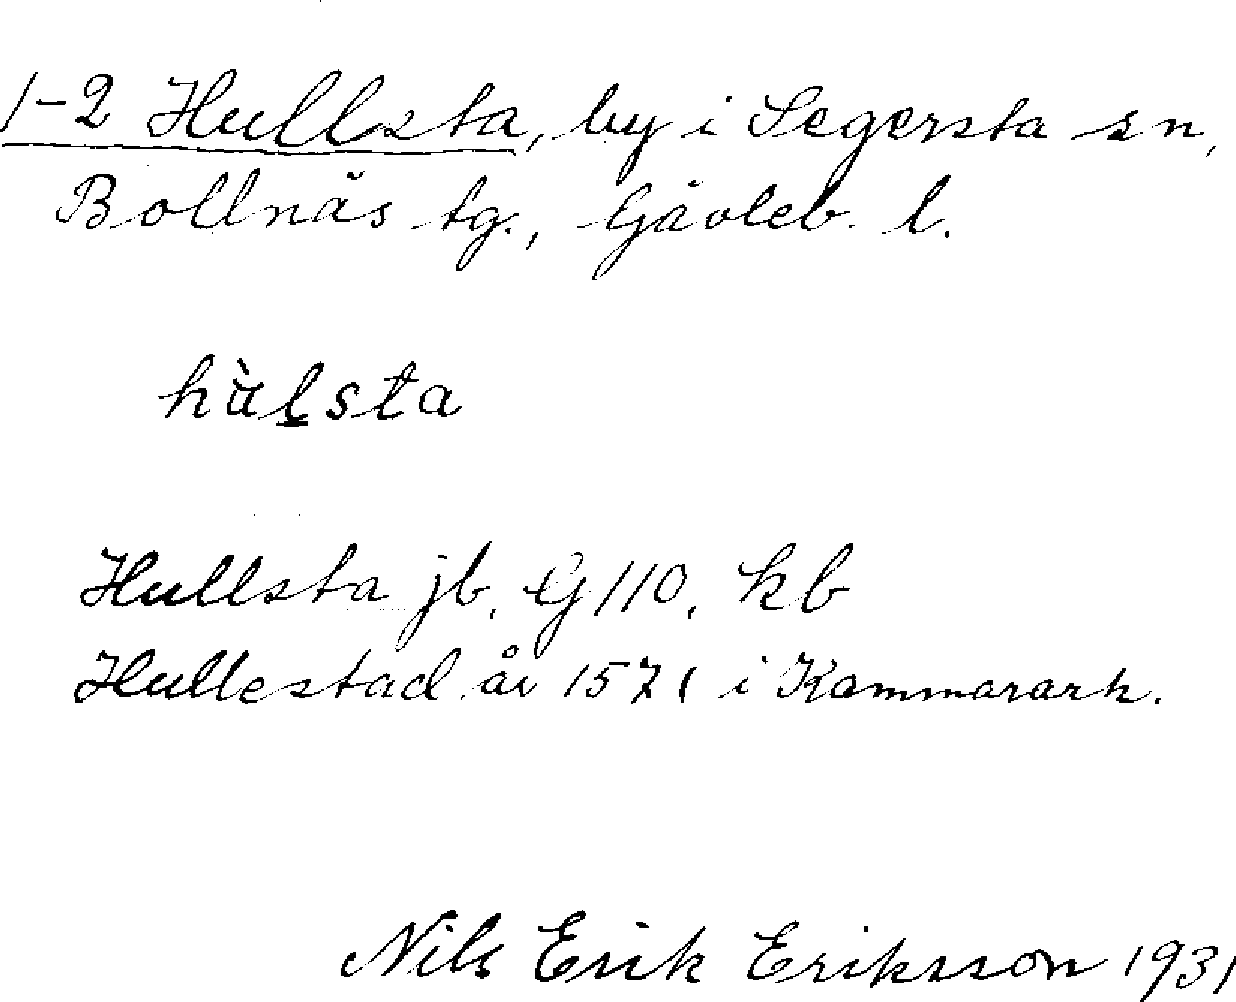 1-2 Hullsta, by i Segersta sn,
Bollnäs tg., Gävleb. l.
hὰl̠sta
Hullsta jb, G110, kb
Hullestad år 1571 i Kammarark.
Nils Erik Eriksson 1931